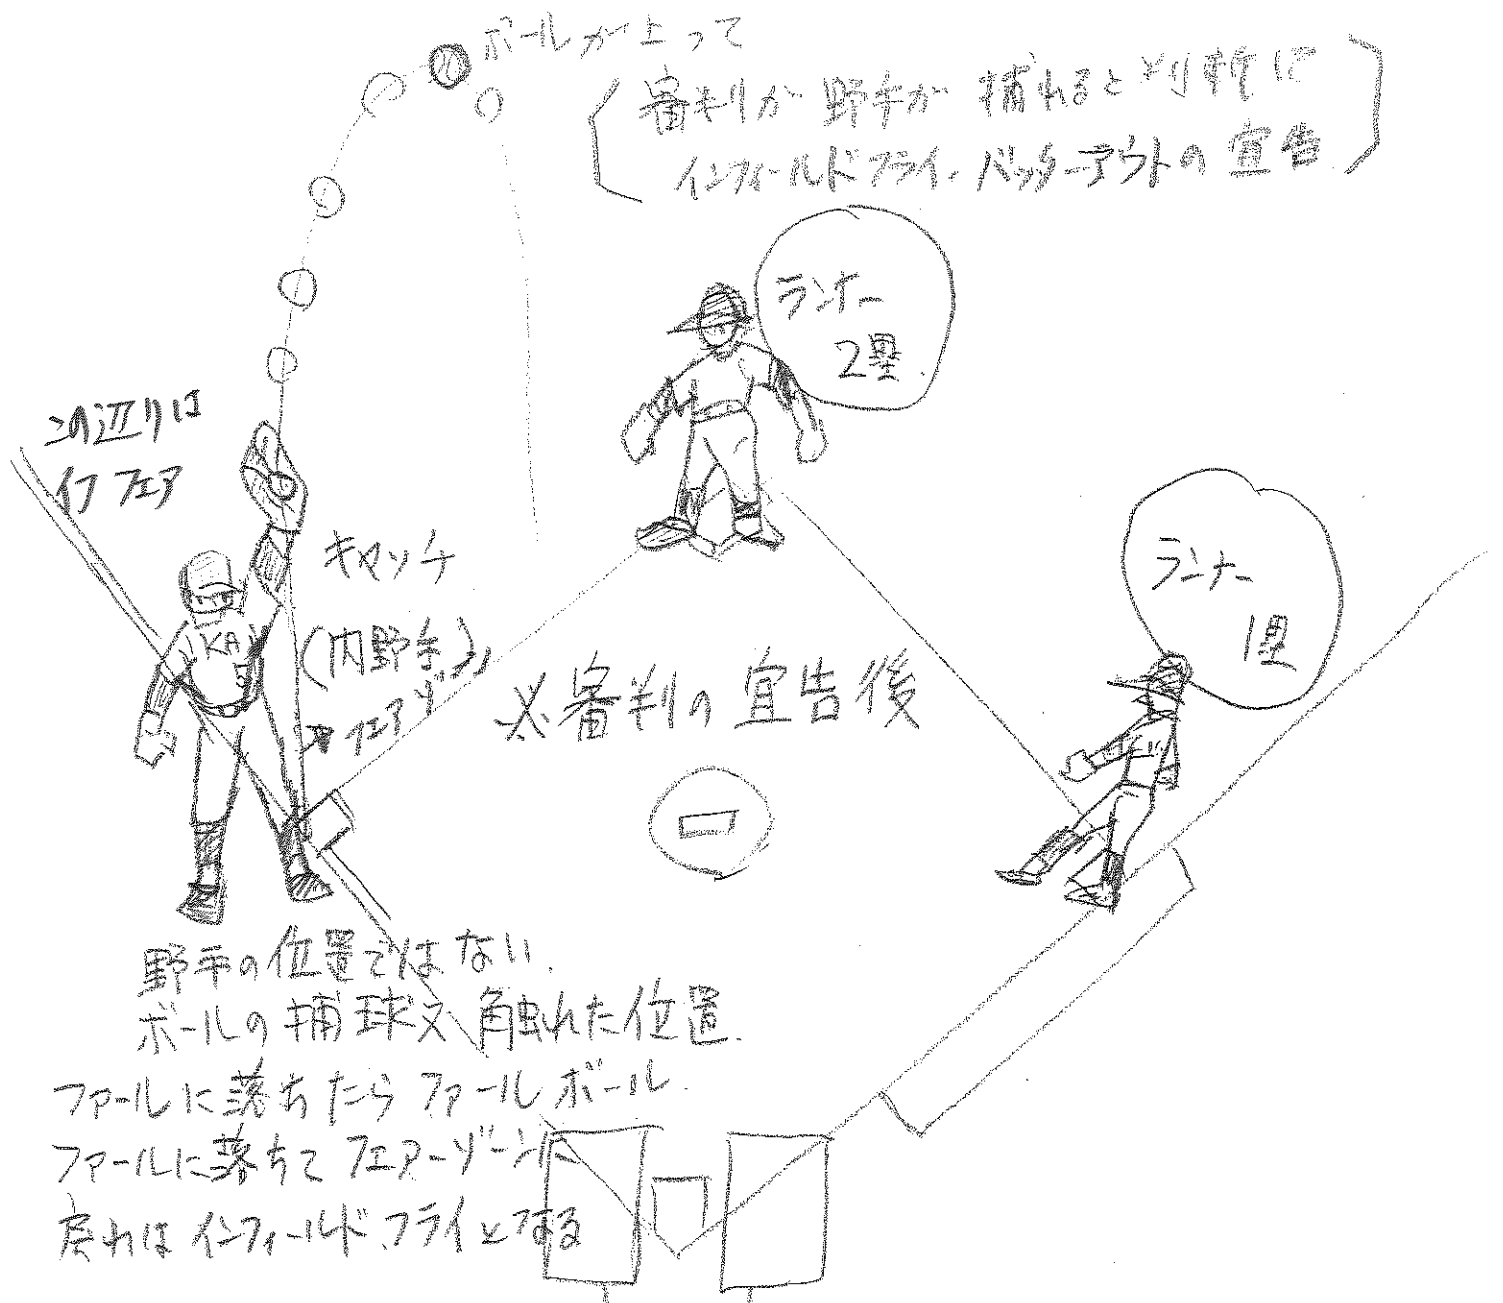 ボールが上って
審判が野手が捕れると判断に
インフィールドフライ・バッターアウトの宣告
ランナー
2塁
この辺りは
イフ フェア
ランナー
1塁
キャッチ
(内野手)
フェアゾーン
※審判の宣告後
KA
野手の位置ではない.
ボールの捕球又触れた位置.
ファールに落ちたらファールボール.
ファールに落ちてフェアーゾーンに
戻ればインフィールドフライとする